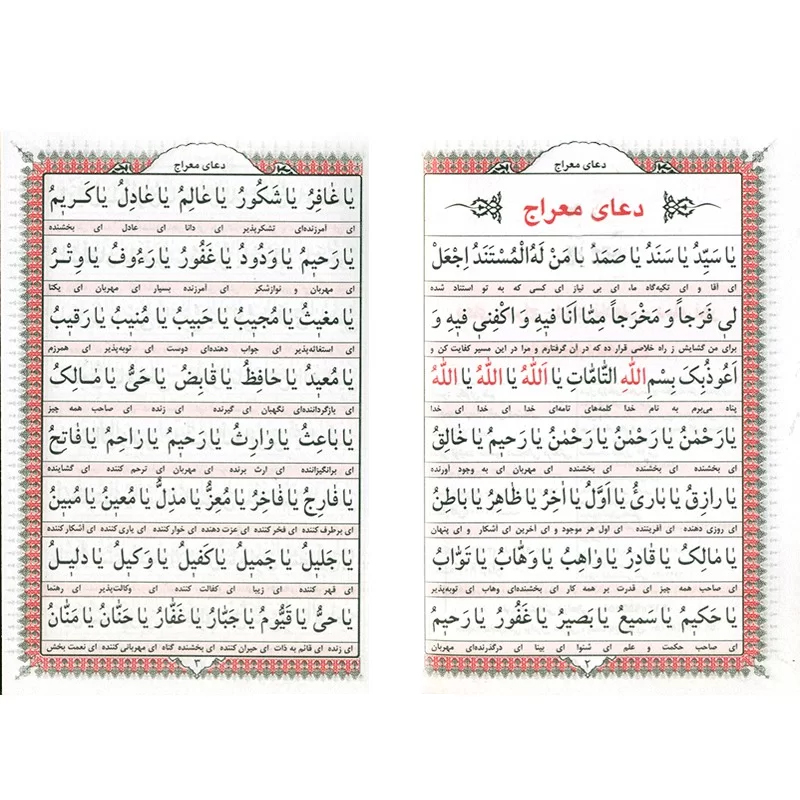 دعای معراج
دعای معراج
یٰا سَیِّدُ یٰا سَنَدُ یٰا صَمَدُ یٰا مَنْ لَهُ الْمُسْتَنَدُ اِجْعَلْ
ای آقا و ای تکیه‌گاه ما، ای بی نیاز ای کسی که به تو استناد شده
لی فَرَجاً وَ مَخْرَجاً مِمّٰا اَنَا فیٖهِ وَ اکْفِنیٖ فیٖهِ وَ
برای من گشایش ز راه خلاصی قرار ده که در آن گرفتارم و مرا در این مسیر کفایت کن و
اَعُوذُبِکَ بِسْمِ اللّٰهِ التّٰامّٰاتِ یٰا اَللّٰهُ یٰا اَللّٰهُ یٰا اَللّٰهُ
پناه می‌برم به نام خدا کلمه‌های تامه‌ای خدا ای خدا ای خدا
یٰا رَحْمٰنُ یٰا رَحْمٰنُ یٰا رَحْمٰنُ یٰا رَحیٖمُ یٰا خٰالِقُ
ای بخشنده ای بخشنده ای بخشنده ای مهربان ای به وجود آورنده
یٰا رازِقُ یٰا بارِیُٔ یٰا اَوَّلُ یٰا اٰخِرُ یٰا ظاهِرُ یٰا باطِنُ
ای روزی دهنده ای آفریننده ای اول هر موجود و ای آخرین ای آشکار و ای پنهان
یٰا مٰالِکُ یٰا قٰادِرُ یٰا وٰاهِبُ یٰا وَهّٰابُ یٰا تَوّٰابُ
ای صاحب همه چیز ای قدرت بر همه کار ای بخشنده‌ای وهاب ای توبه‌پذیر
یٰا حَکیٖمُ یٰا سَمیٖعُ یٰا بَصیٖرُ یٰا غَفُورُ یٰا رَحیٖمُ
ای صاحب حکمت و علم ای شنوا ای بینا ای درگذرنده‌ای مهربان
۲
دعای معراج
یٰا غٰافِرُ یٰا شَکُورُ یٰا عٰالِمُ یٰا عٰادِلُ یٰا کَریٖمُ
ای آمرزنده‌ای تشکرپذیر ای دانا ای عادل ای بخشنده
یٰا رَحیٖمُ یٰا وَدُودُ یٰا غَفُورُ یٰا رَءُوفُ یٰا وِتْرُ
ای مهربان و نوازشگر ای آمرزنده بسیار ای مهربان ای یکتا
یٰا مغیٖثُ یٰا مُجیٖبُ یٰا حَبیٖبُ یٰا مُنیٖبُ یٰا رَقیٖبُ
ای استغاثه‌پذیر ای جواب دهنده‌ای دوست ای توبه‌پذیر ای همرزم
یٰا مُعیٖدُ یٰا حٰافِظُ یٰا قٰابِضُ یٰا حَیُّ یٰا مٰالِکُ
ای بازگرداننده‌ای نگهبان ای گیرنده ای زنده ای صاحب همه چیز
یٰا بٰاعِثُ یٰا وٰارِثُ یٰا رَحیٖمُ یٰا رٰاحِمُ یٰا فٰاتِحُ
ای برانگیزاننده ای ارث برنده ای مهربان ای ترحم کننده ای گشاینده
یٰا فٰارِجُ یٰا فٰاخِرُ یٰا مُعِزُّ یٰا مذِلُّ یٰا مُعیٖنُ یٰا مُبیٖنُ
ای برطرف کننده ای فخر کننده ای عزت دهنده ای خوار کننده ای یاری کننده ای آشکار کننده
یٰا جَلیٖلُ یٰا جَمیٖلُ یٰا کَفیٖلُ یٰا وَکیٖلُ یٰا دَلیٖلُ
ای قهر کننده ای زیبا ای کفالت کننده ای وکالت‌پذیر ای رهنما
یٰا حَیُّ یٰا قَیُّومُ یٰا جَبّٰارُ یٰا غَفّٰارُ یٰا حَنّٰانُ یٰا مَنّٰانُ
ای زنده ای قائم به ذات ای جبران کننده ای بخشنده گناه ای مهربانی کننده ای نعمت بخش
۳